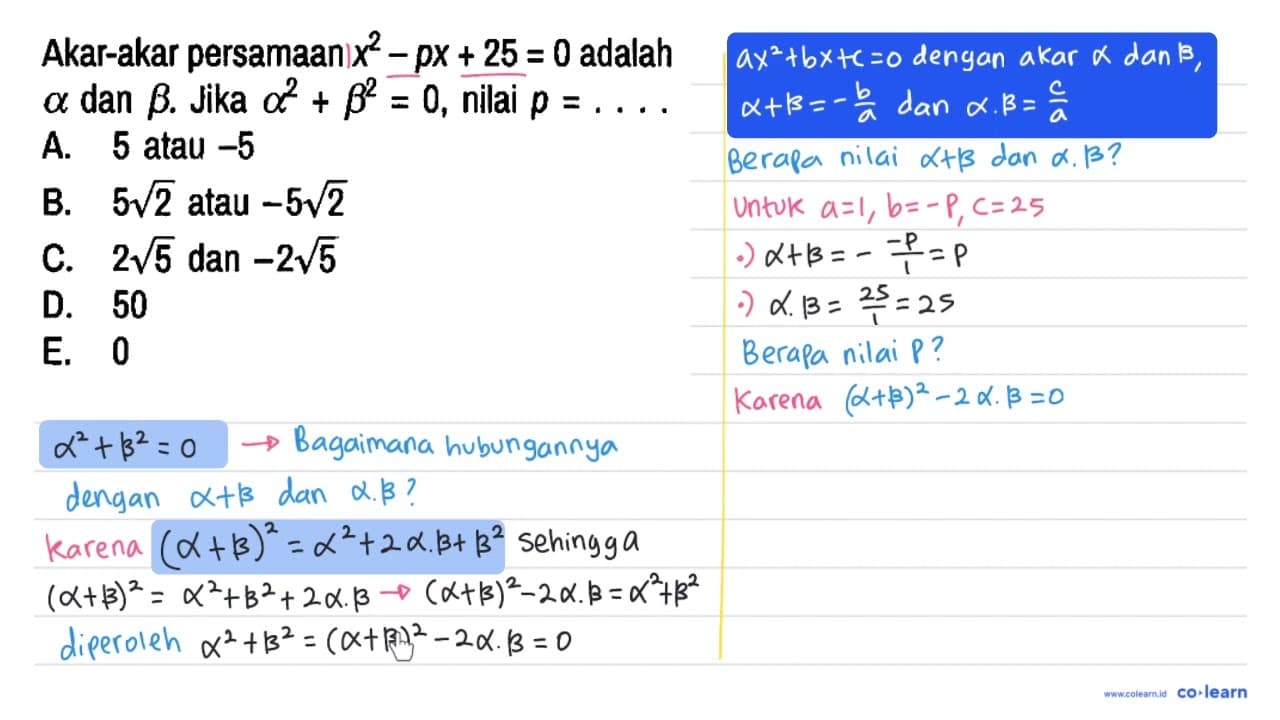 Akar-akar persamaan x² − px + 25 = 0 adalah
α dan β. Jika α² + β² = 0, nilai p = . . . .
A. 5 atau −5
B. 5√2 atau −5√2
C. 2√5 dan −2√5
D. 50
E. 0
α² + β² = 0 → Bagaimana hubungannya
dengan α+β dan α.β?
karena (α+β)² = α²+2α.β+β² sehingga
(α+β)² = α²+β²+2α.β → (α+β)²−2α.β = α²+β²
diperoleh α²+β² = (α+β)²−2α.β = 0
ax²+bx+c=0 dengan akar α dan β,
α+β = −b/a dan α.β = c/a
Berapa nilai α+β dan α.β?
Untuk a=1, b=−P, c=25
•) α+β = − −P/1 = P
•) α.β = 25/1 = 25
Berapa nilai P?
Karena (α+β)² − 2α.β = 0
www.colearn.id co·learn